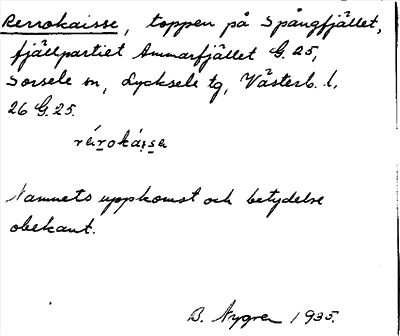 Rerrokaisse, toppen på Spångfjället,
fjällpartiet Ammarfjället G. 25,
Sorsele sn, Lycksele tg, Västerb. l.
26 G. 25.
Namnets uppkomst och betydelse
obekant.
B. Nygren 1935.